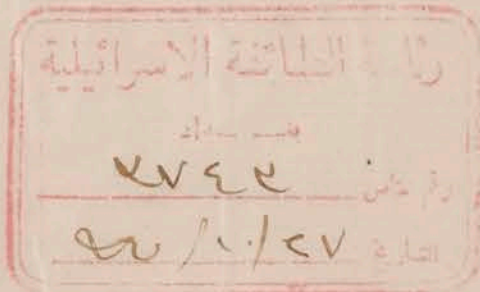 رئاسة الطائفة الاسرائيلية
بغداد
رقم خاص ٣٧٤٣
التاريخ ٢٧/١٠/